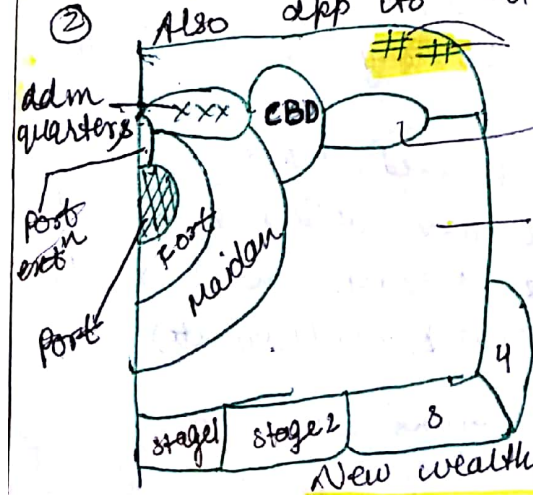 ② Also app to
adm
quarters
xxx
CBD
Port
extn
Fort
Maidan
Port
4
stage1
stage 2
8
New wealth